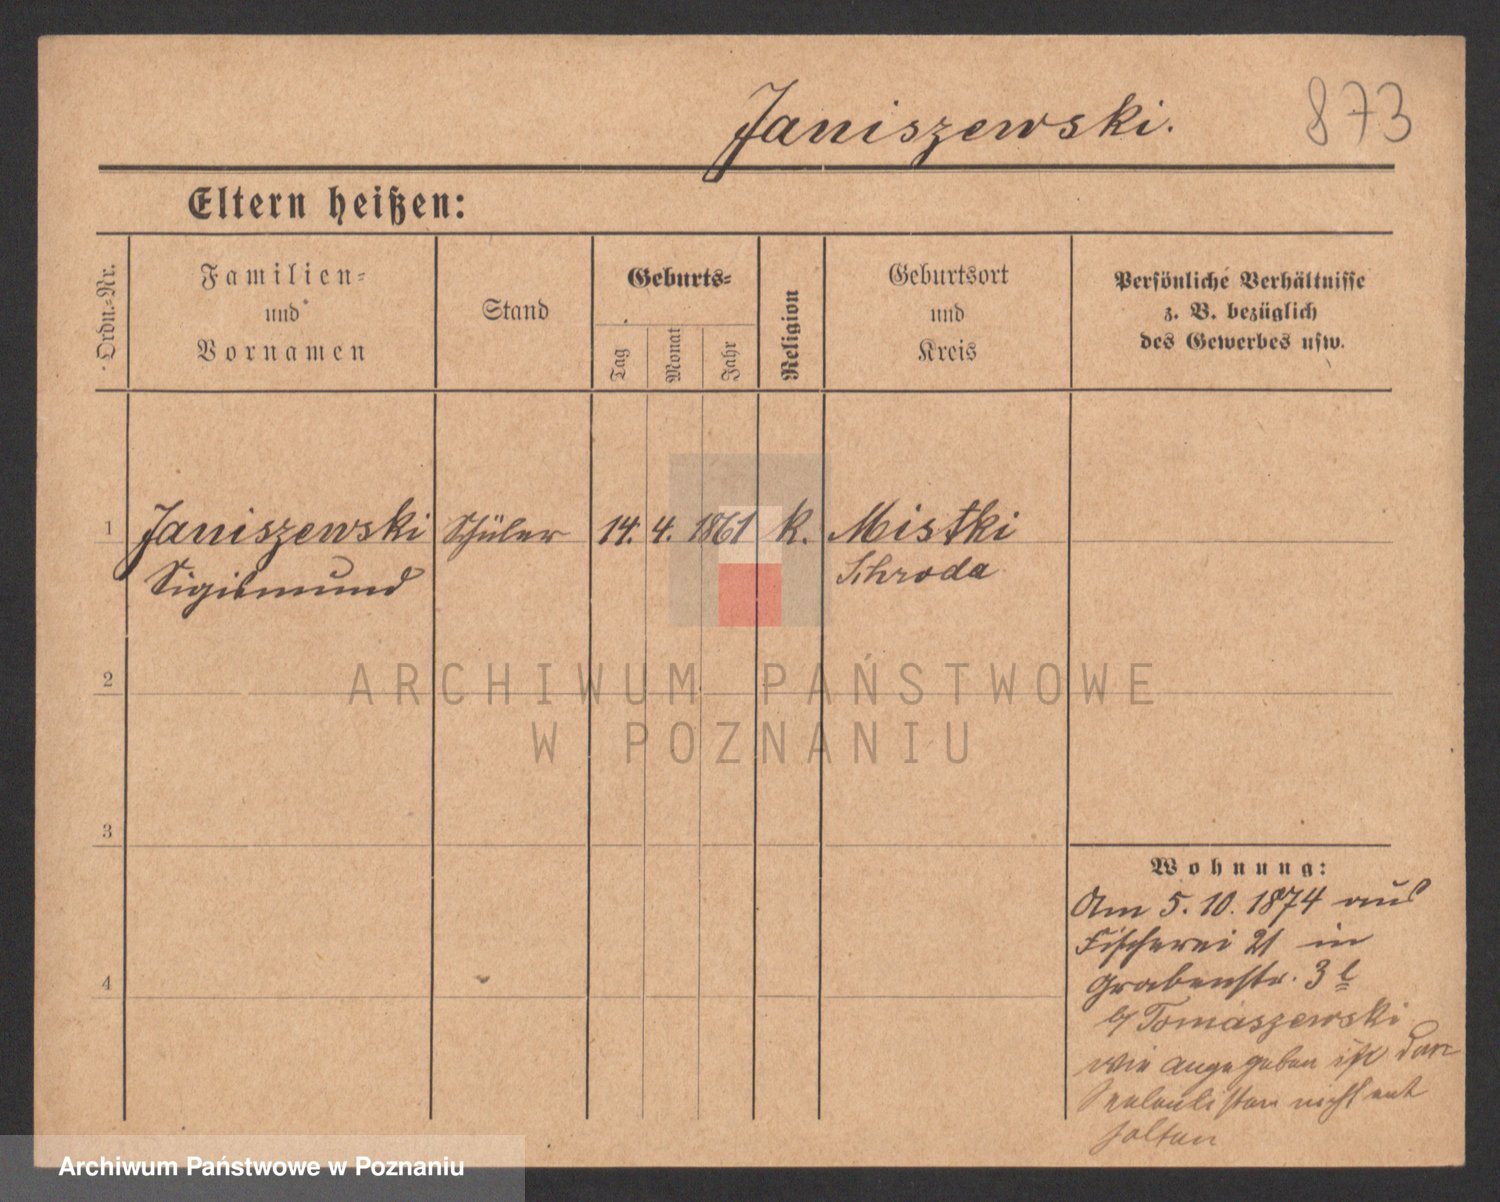 Janiszewski.
873
Eltern heißen:
Ordn.=Nr.
Familien=
und
Vornamen
Stand
Geburts=
Tag
Monat
Jahr
Religion
Geburtsort
und
Kreis
Persönliche Verhältnisse
z. B. bezüglich
des Gewerbes usw.
1 Janiszewski Schüler 14. 4. 1861 k. Mistki
Sigismund Schroda
2
ARCHIWUM PAŃSTWOWE
W POZNANIU
3
Wohnung:
Am 5. 10. 1874 aus
Fischerei 21 in
4
Grabenstr. 3
b/ Tomaszewski
wie angegeben ist dar
nicht ent
halten
Archiwum Państwowe w Poznaniu